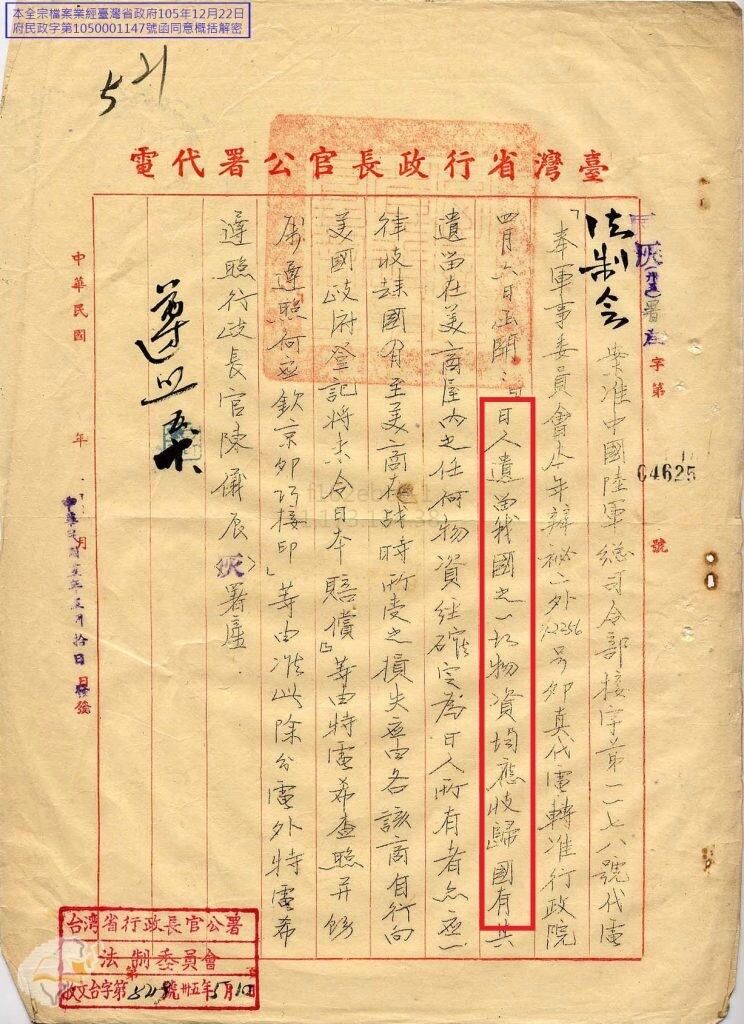 本全宗檔案業經臺灣省政府105年12月22日
府民政字第1050001147號函同意概括解密
521
臺灣省行政長官公署代電
署產字第04625號
法制会
案准中國陸軍總司令部接字第一一七八號代電
「奉軍事委員會本年辦祕一外字12256號卯真代電轉准行政院
四月六日函開：「日人遺留我國之一切物資均應收歸國有其
遺留在美商屋內之任何物資經確定為日人所有者亦應一
律收歸國有至美商在战時所受之損失應由各該商自行向
美國政府登記將來令日本賠償」等由特電希查照并飭
屬遵照何應欽京卯巧接印」等由准此除分電外特電希
遵照行政長官陳儀辰灰署產
遵照
中華民國 年 月 日
中華民國卅五年五月拾日發
台湾省行政長官公署
法制委員會
收文台字第521號卅五年5月10